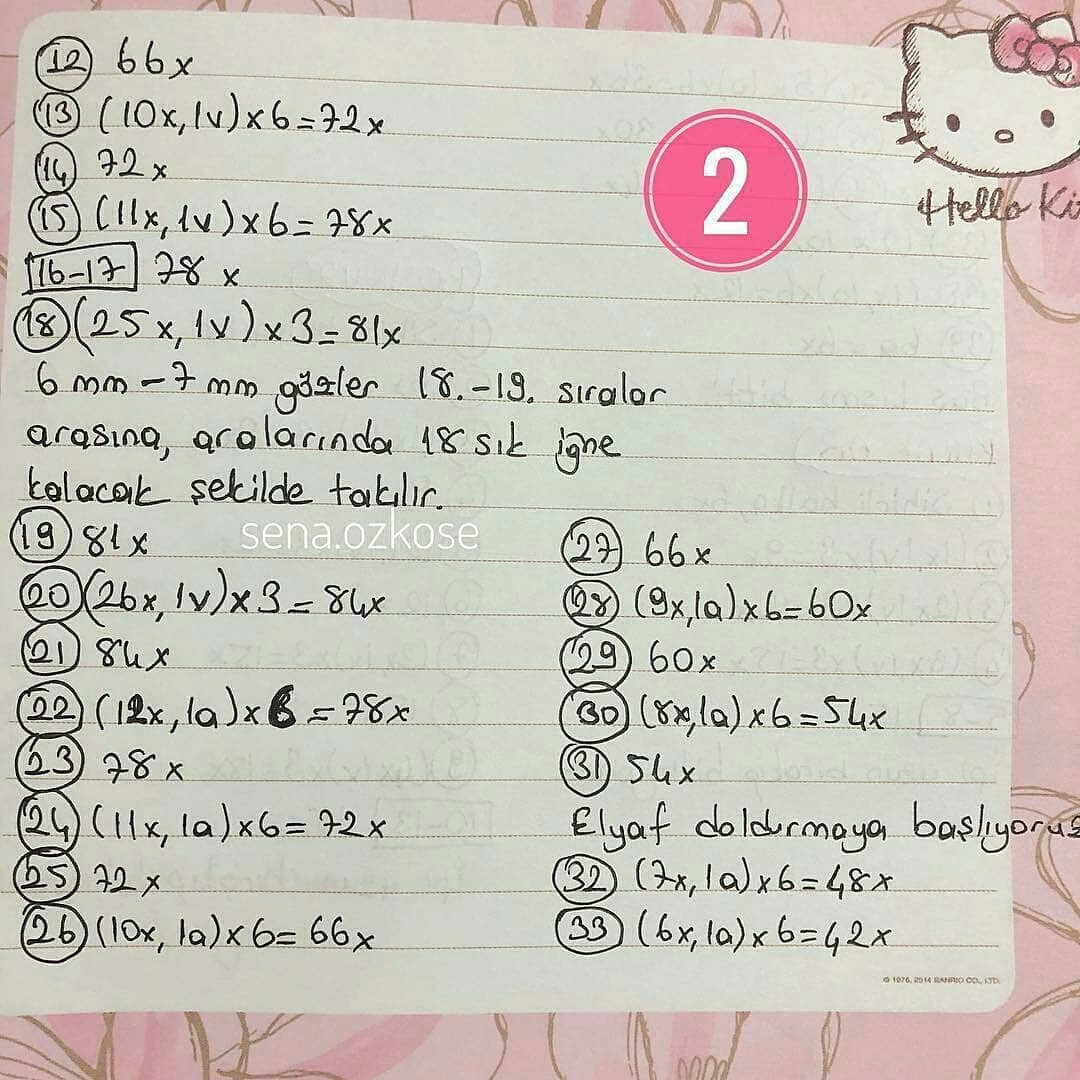 12 66x
13 (10x, 1v)x6=72x
14 72x
15 (11x, 1v)x6=78x
16-17 78x
18 (25x, 1v)x3=81x
6 mm-7 mm gözler 18.-19. sıralar
arasına, aralarında 18 sık iğne
kalacak şekilde takılır.
19 81x
20 (26x, 1v)x3=84x
21 84x
22 (12x, 1a)x6=78x
23 78x
24 (11x, 1a)x6=72x
25 72x
26 (10x, 1a)x6=66x
27 66x
28 (9x, 1a)x6=60x
29 60x
30 (8x, 1a)x6=54x
31 54x
Elyaf doldurmaya başlıyoruz
32 (7x, 1a)x6=48x
33 (6x, 1a)x6=42x
2
Hello Ki
sena.ozkose
© 1976, 2014 SANRIO CO., LTD.